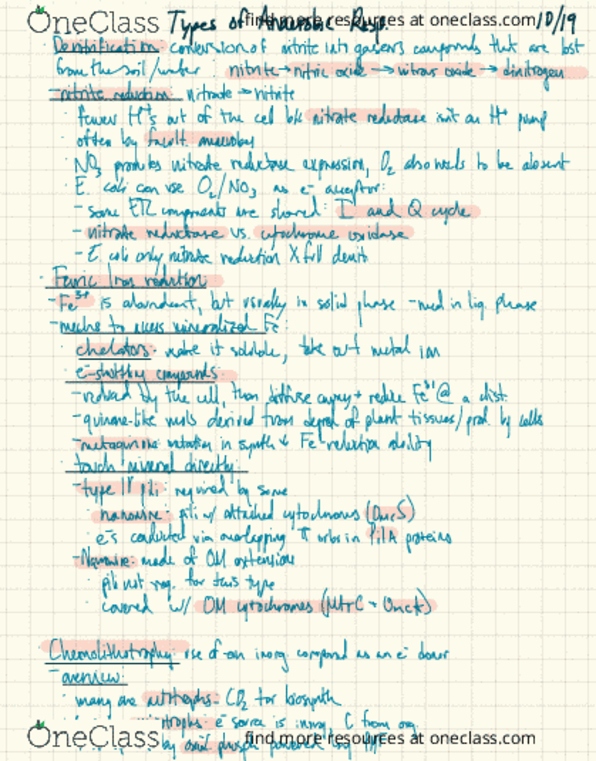 OneClass find more resources at oneclass.com
Types of Anaerobic Resp. 10/19
Denitrification: conversion of nitrite into gaseous compounds that are lost
from the soil/water nitrite → nitric oxide → nitrous oxide → dinitrogen
- nitrite reduction: nitrate → nitrite
· fewer H+'s out of the cell b/c nitrate reductase isn't an H+ pump
· often by facult. anaerobes
· NO3 promotes nitrate reductase expression, O2 also needs to be absent
· E. coli can use O2/NO3 as e- acceptor:
- some ETC components are shared: I and Q cycle
- nitrate reductase vs. cytochrome oxidase
- E. coli only nitrate reduction X full denit
· Ferric Iron reduction:
- Fe3+ is abundant, but usually in solid phase - need in liq. phase
- mechs to access mineralized Fe:
· chelators: make it soluble, take out metal ion
· e- shuttling compounds:
- reduced by the cell, then diffuse away + reduce Fe3+ @ a dist.
- quinone-like mols derived from degrad of plant tissues/prod. by cells
- mutation in synth ↓ Fe reduction ability
· touch mineral directly:
- type IV pili: required by some
· nanowire: pili w/ attached cytochromes (OmcS)
· e-s conducted via overlapping π orbs in PilA proteins
- Nanowire: made of OM extensions
· pili not req. for this type
· covered w/ OM cytochromes (MtrC + OmcA)
Chemolithotrophy: use of an inorg. compound as an e- donor
- overview:
· many are autotrophs - CO2 for biosynth
trophs e- source is inorg. C from org.
by oxid phosph powered by PMF
OneClass find more resources at oneclass.com